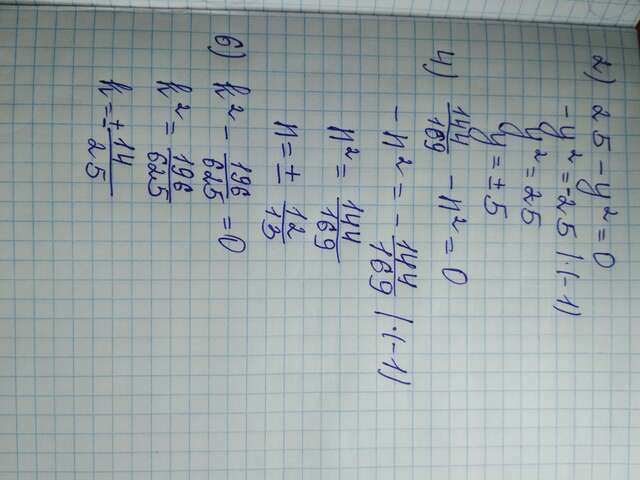 2) 25 - y² = 0
-y² = -25 | · (-1)
y² = 25
y = ± 5
4) 144/169 - n² = 0
-n² = - 144/169 | · (-1)
n² = 144/169
n = ± 12/13
6) k² - 196/625 = 0
k² = 196/625
k = ± 14/25